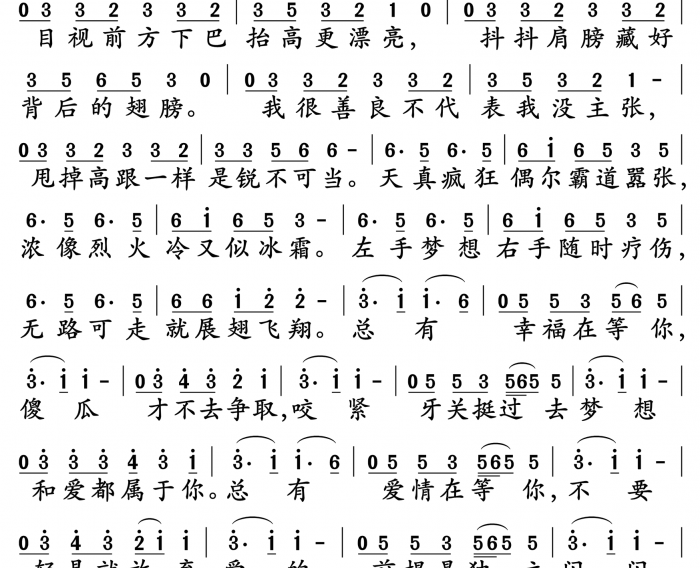 0 3 3 2 3 3 3 2 | 3 5 3 2 1 0 | 0 3 3 2 3 3 3 2 |
目视前方下巴抬高更漂亮, 抖抖肩膀藏好
3 5 6 5 3 0 | 0 3 3 2 3 3 3 2 | 3 5 3 2 1 - |
背后的翅膀。 我很善良不代表我没主张,
0 3 3 2 3 3 3 2 | 3 3 5 6 6 - | 6· 5 6· 5 | 6 i 6 5 3 5 |
甩掉高跟一样是锐不可当。天真疯狂偶尔霸道嚣张,
6· 5 6· 5 | 6 i 6 5 3 - | 6· 5 6· 5 | 6 i 6 5 3 5 |
浓像烈火冷又似冰霜。左手梦想右手随时疗伤,
6· 5 6· 5 | 6 6 i 2 2 - | 3· i i· 6 | 0 5 5 3 5 6 5 |
无路可走就展翅飞翔。总有 幸福在等你,
3· i i - | 0 3 4 3 2 i | 3· i i - | 0 5 5 3 5 6 5 5 | 3· i i - |
傻瓜 才不去争取,咬紧 牙关挺过去梦想
0 3 3 3 4 3 i | 3· i i· 6 | 0 5 5 3 5 6 5 5 | 3· i i - |
和爱都属于你。总有 爱情在等你,不要
0 3 4 3 2 i i | 3· i i - | 0 5 5 3 5 6 5 5 | 3· i i - |